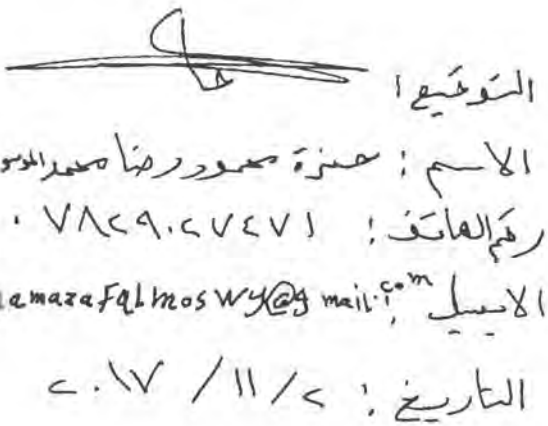 التوقيع :
الاسم : حمزة محمود رضا محمد الموسو
رقم الهاتف : ٠٧٨٢٩٠٢٧٤٧١
الايميل : amazaFqlmoswy@gmail.com
التاريخ : ٢ / ١١ / ٢٠١٧